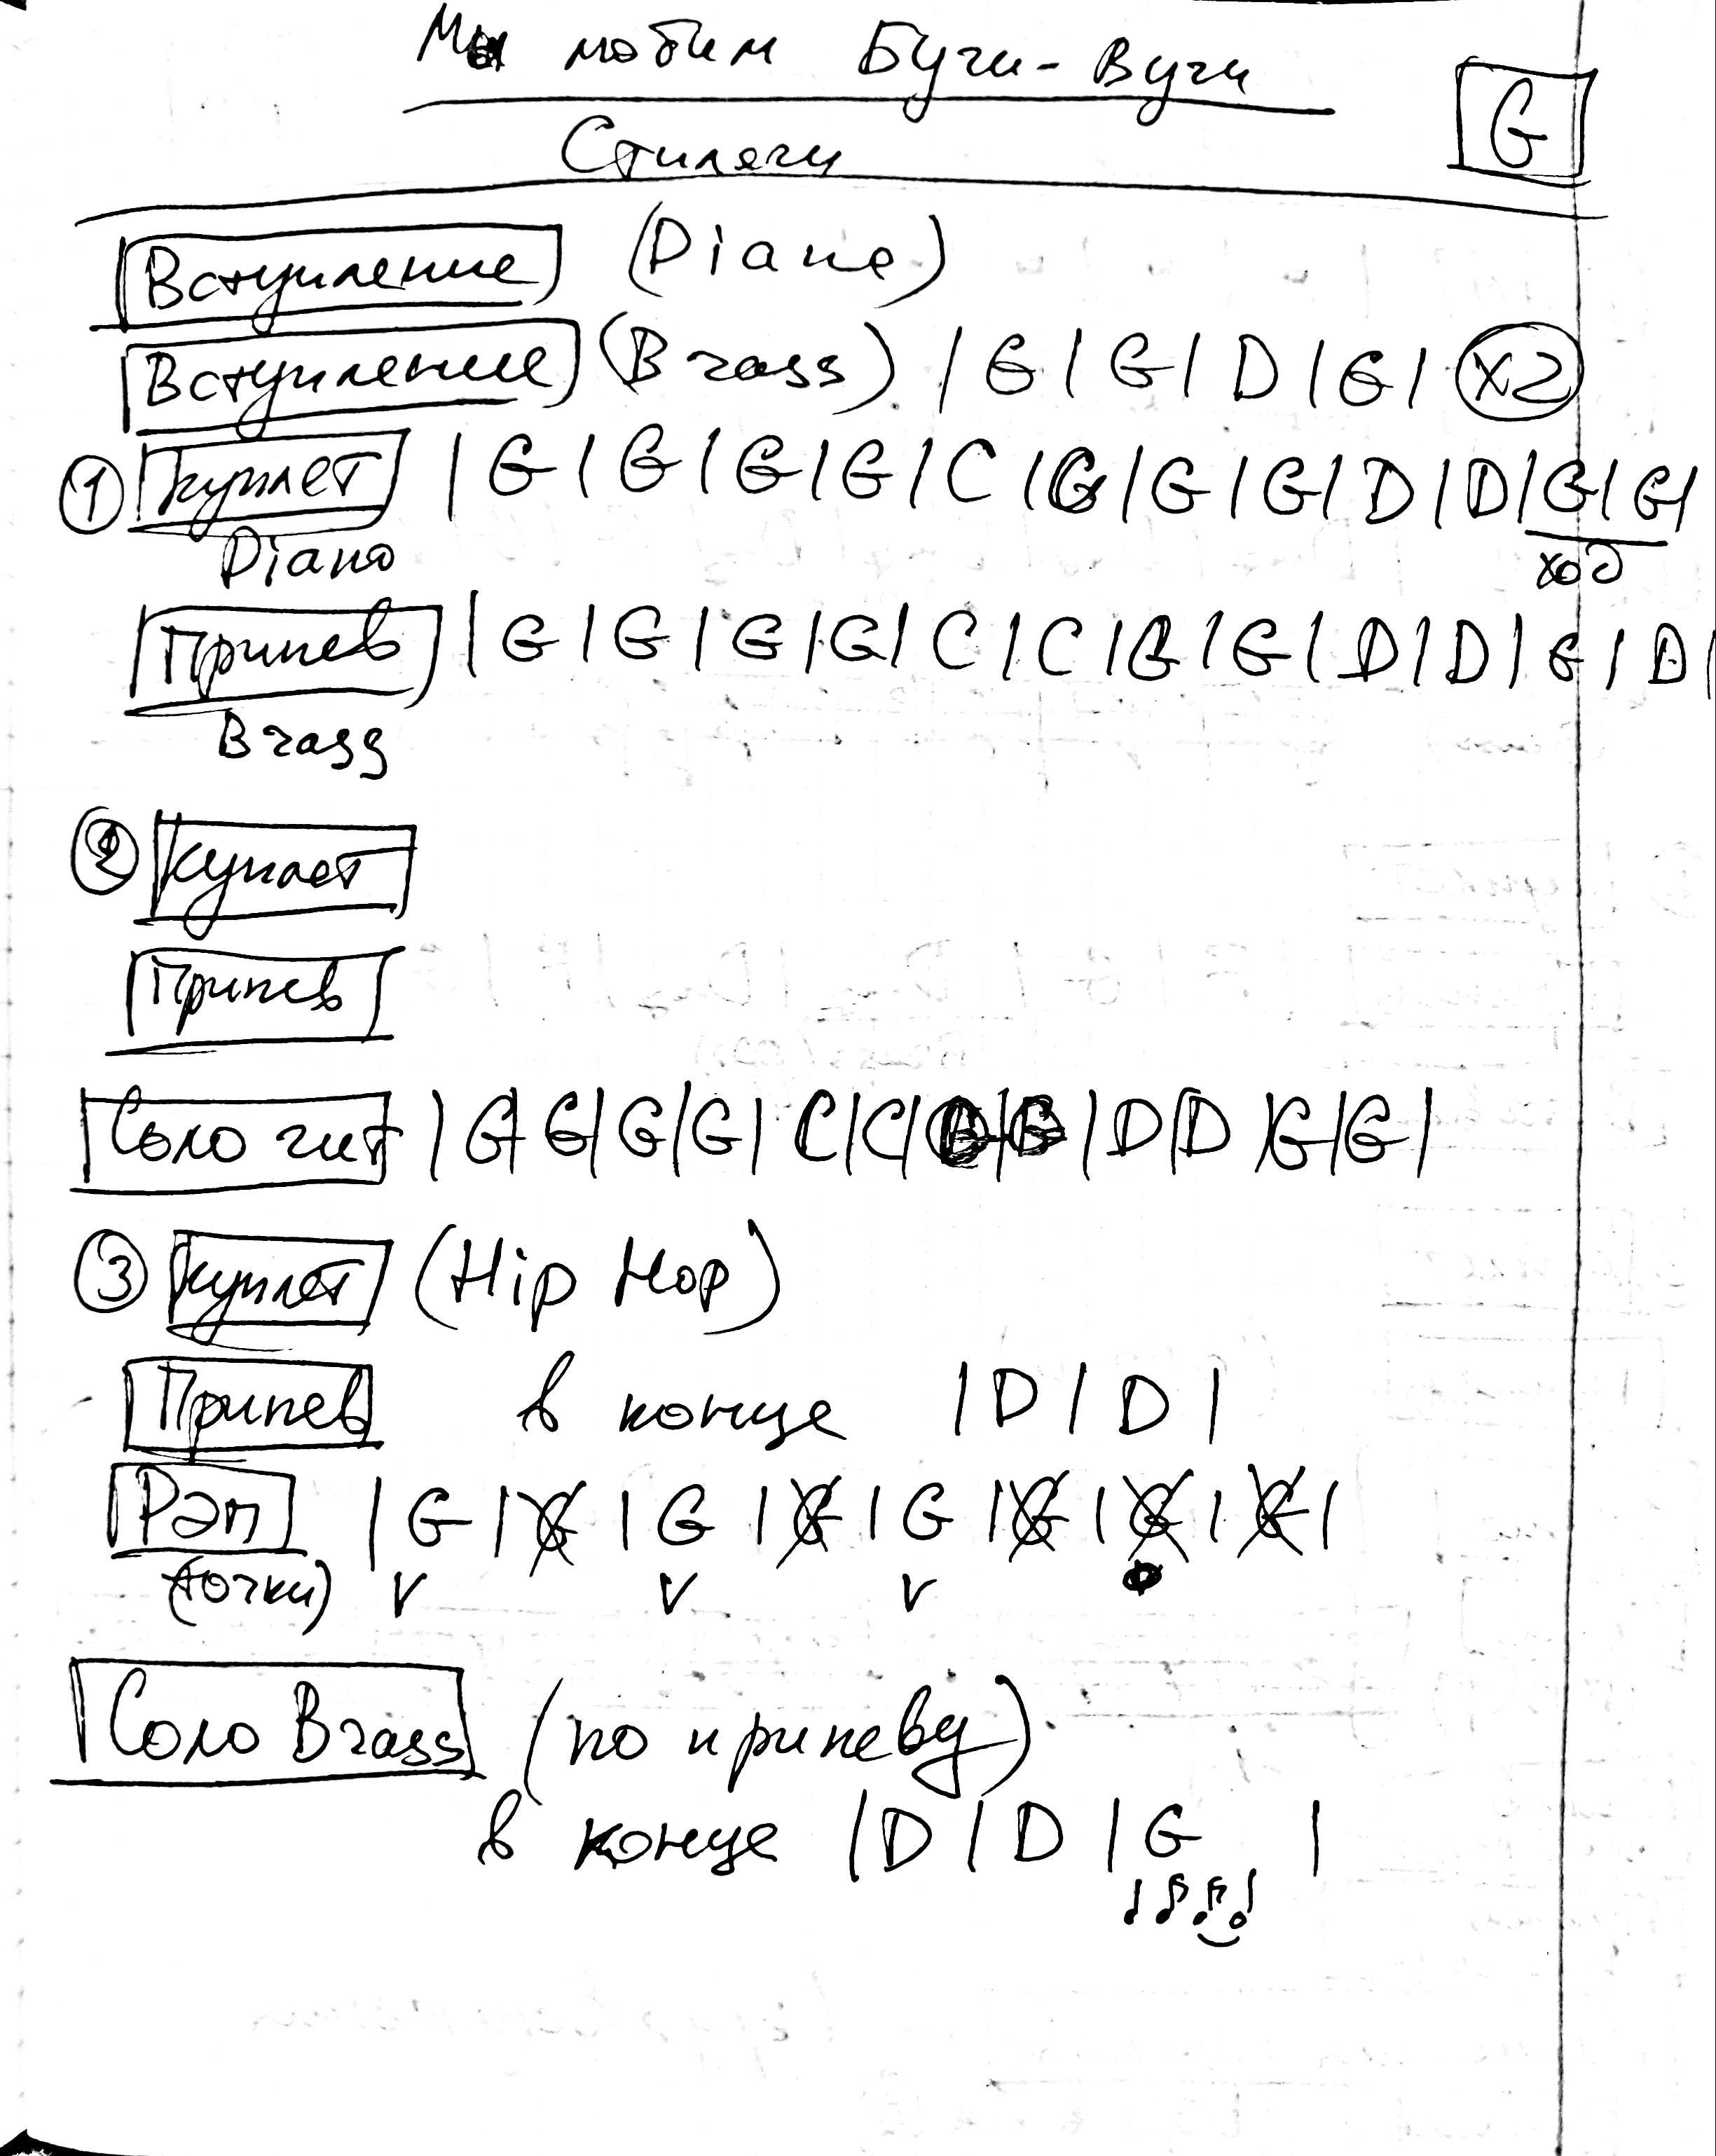 Мы любим Буги-Вуги
G
Стиляги
Вступление (Piano)
Вступление (Brass) | G | G | D | G | x2
1 Куплет | G | G | G | G | C | G | G | G | D | D | G | G |
Piano ход
Припев | G | G | G | G | C | C | G | G | D | D | G | D |
Brass
2 Куплет
Припев
Соло гит | G | G | G | G | C | C | G | G | D | D | G | G |
3 Куплет (Hip Hop)
Припев в конце | D | D |
Рэп | G | G | G | G | G | G | G | G |
(точки) V V V
Соло Brass (по припеву)
в конце | D | D | G |